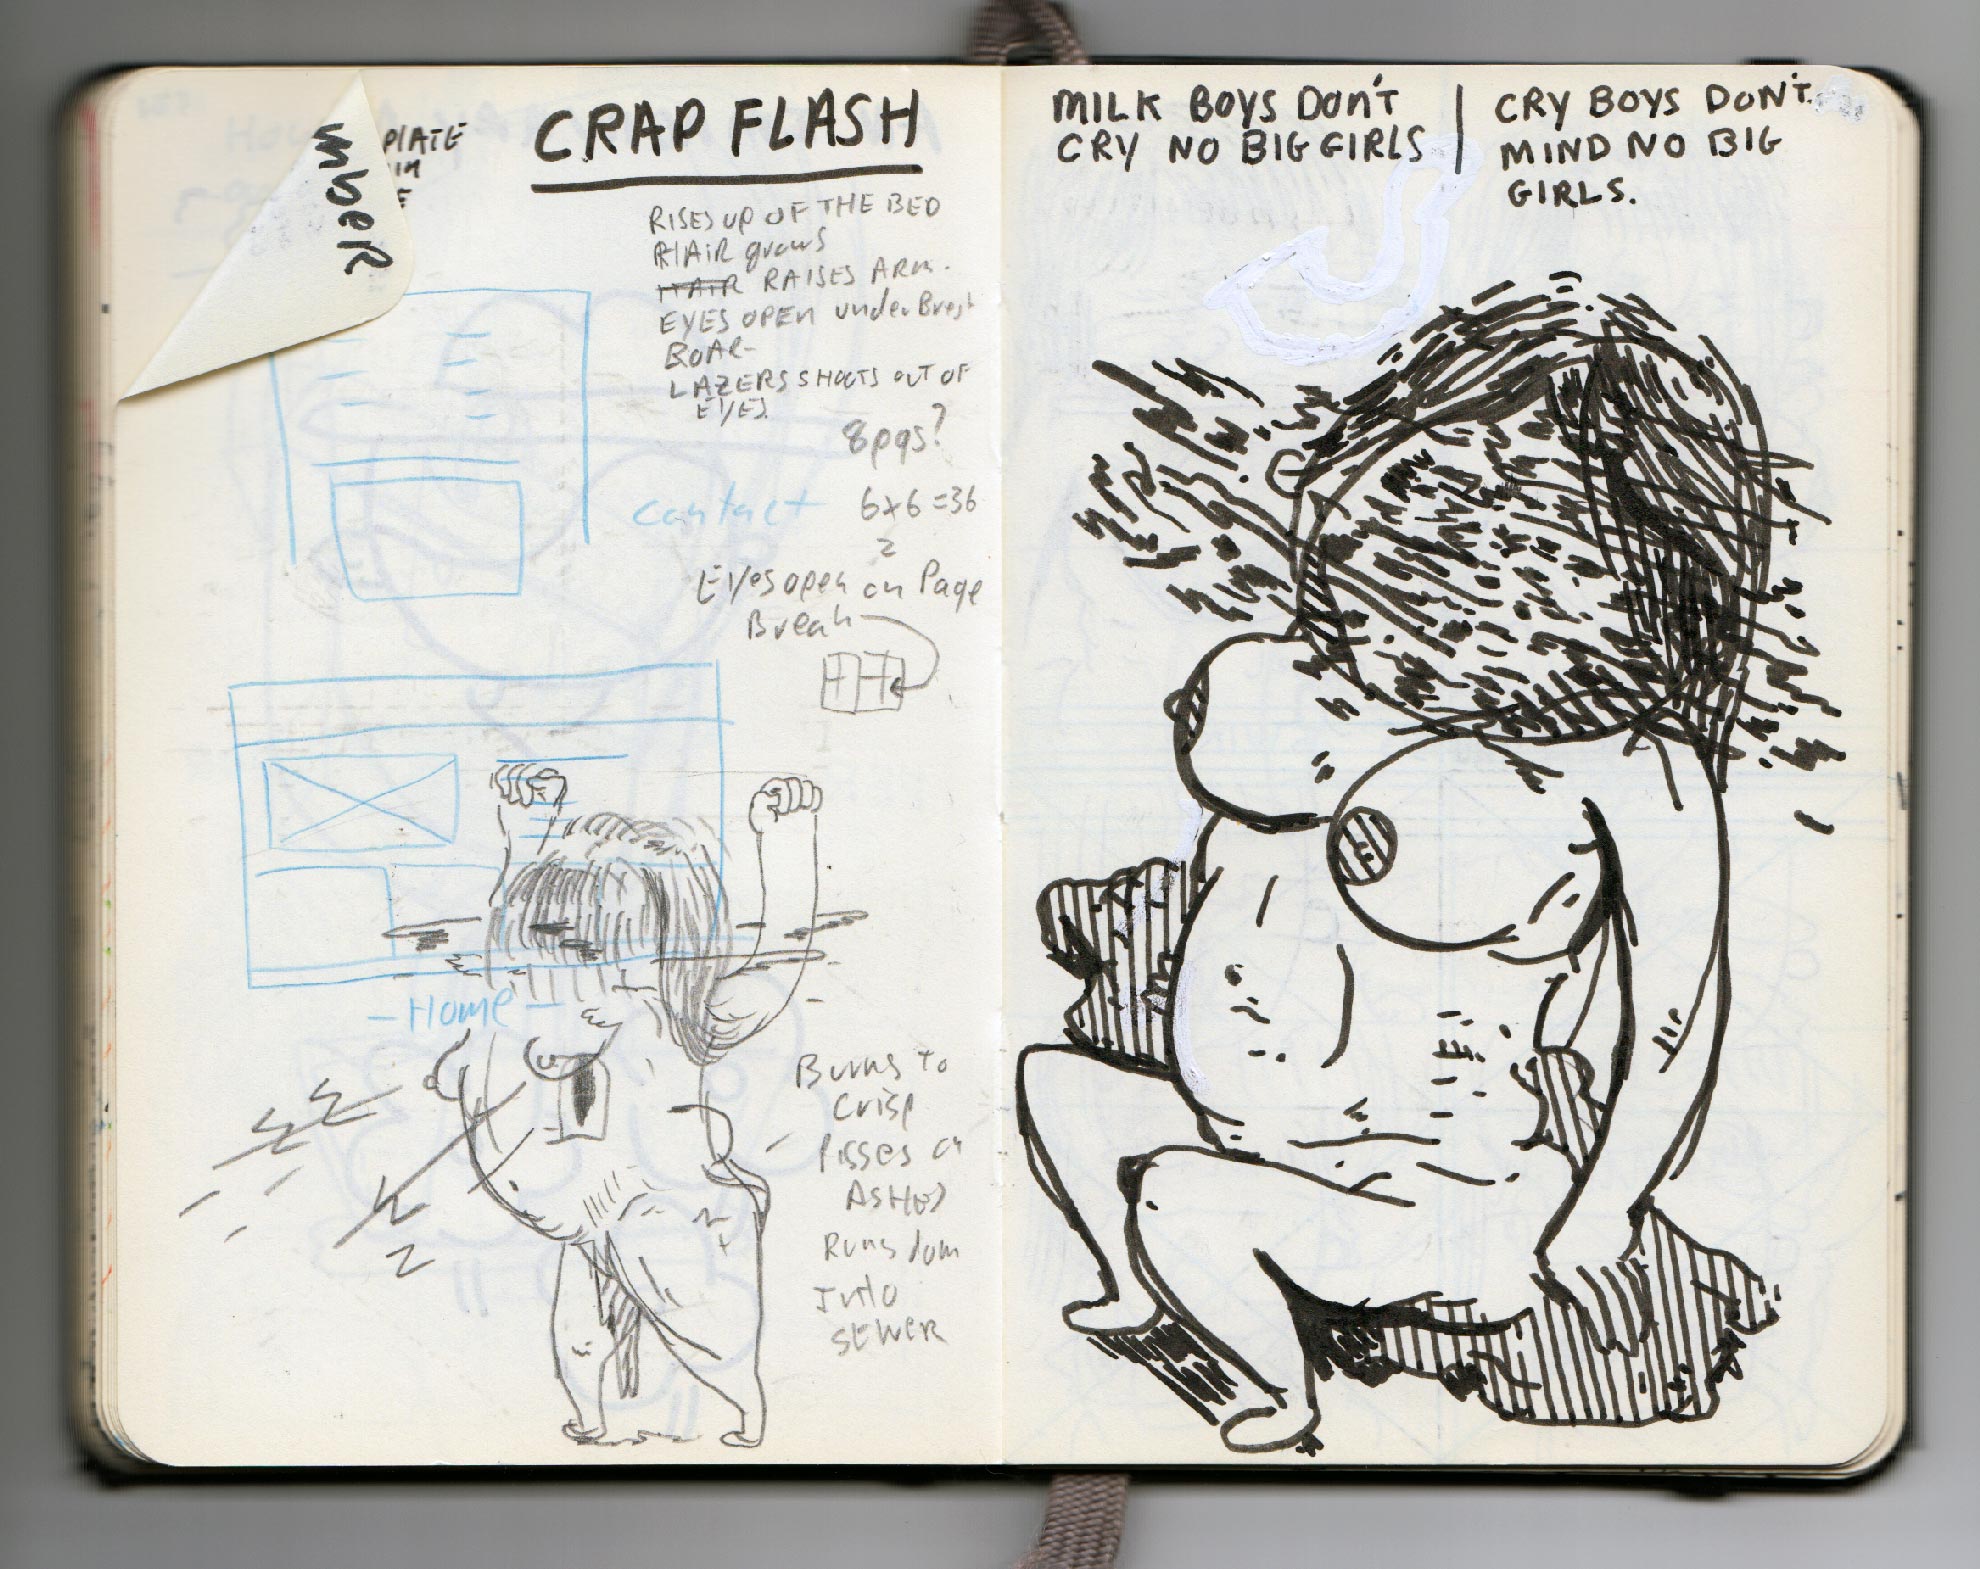 mbeR
PlATE
CRAP FLASH
RISES UP OF THE BED
HAiR grows
HAIR RAISES ARM.
EYES OPEN under Breast
ROAR
LAZERS SHOOTS OUT OF
EYES
8 pgs?
contact
6x6=36
2
Eyes open on Page
Break
- Home -
Burns to
Crisp
Pisses on
ASHES
Runs down
Into
SEWER
MILK BOYS DON'T
CRY NO BIG GIRLS
CRY BOYS DON'T.
MIND NO BIG
GIRLS.